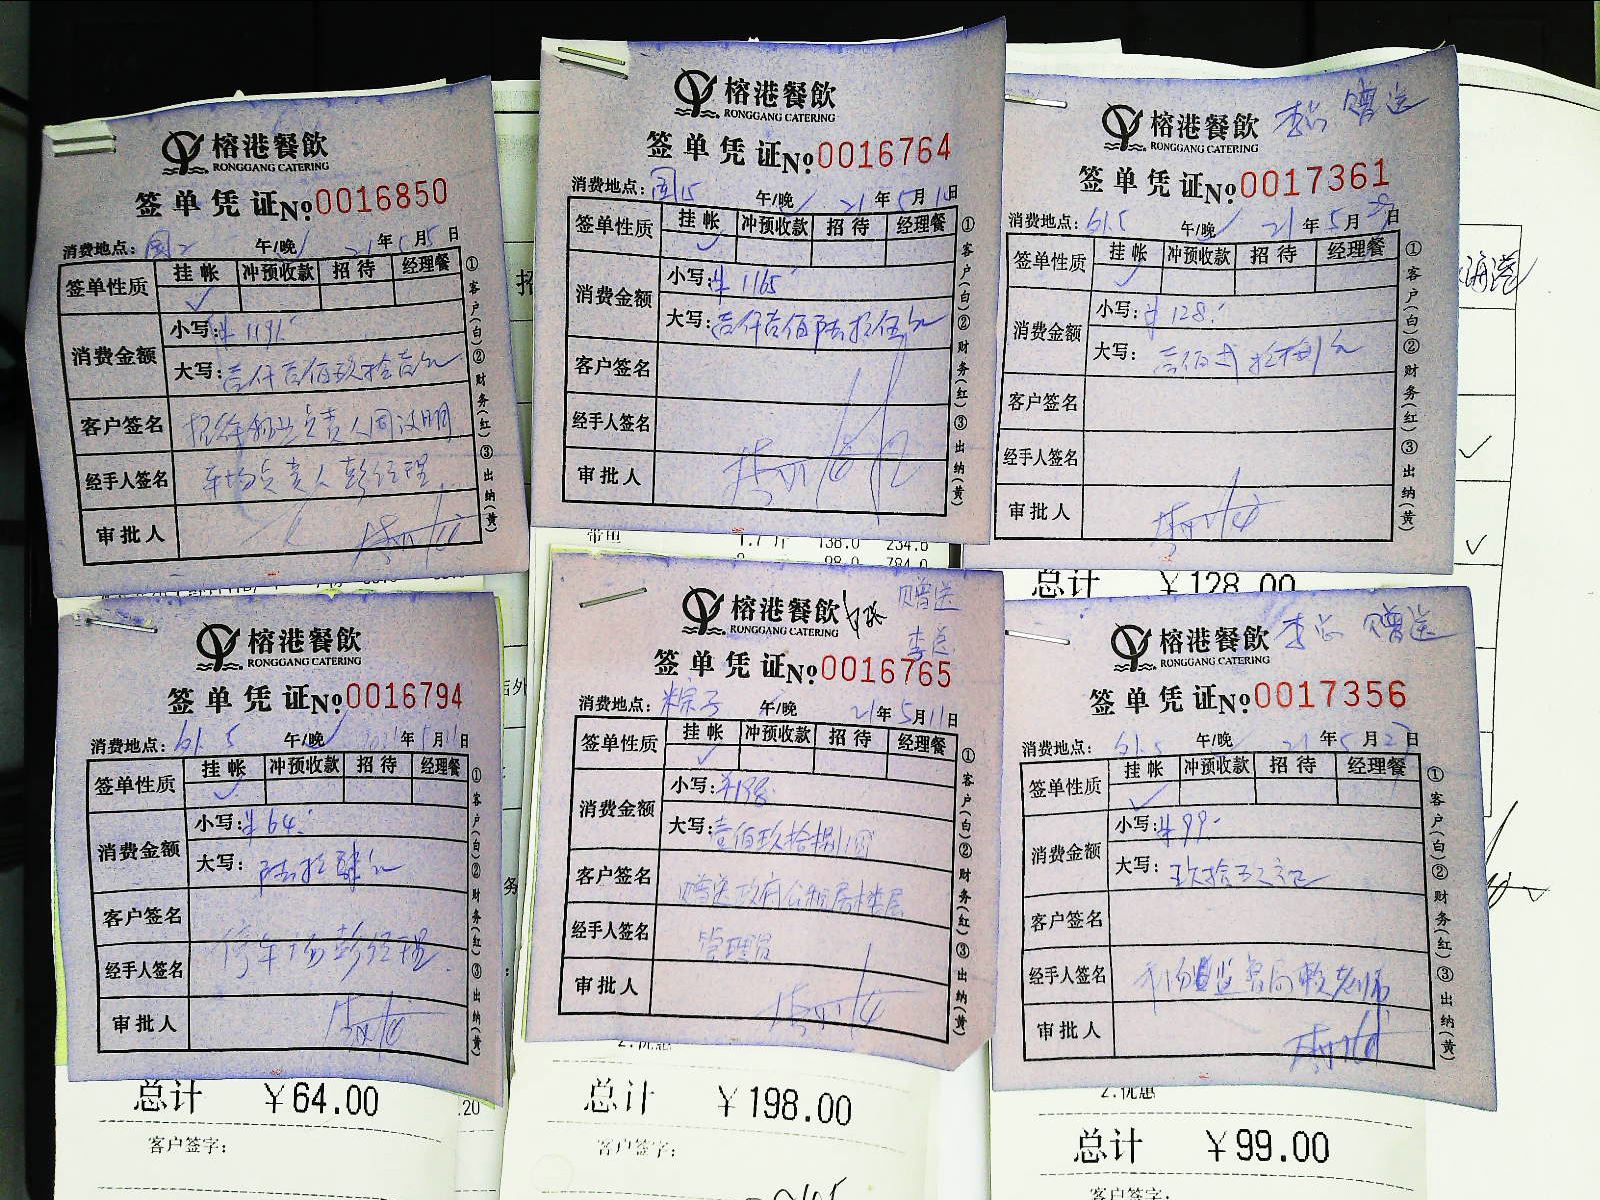 榕港餐飲
RONGGANG CATERING
签单凭证No.0016850
消费地点: 午/晚 21年5月5日
签单性质 挂帐 冲预收款 招待 经理餐
消费金额 小写:¥1191.
大写:壹仟壹佰玖拾壹元
客户签名
经手人签名 车场负责人彭经理
审批人
①客户(白)②财务(红)③出纳(黄)
榕港餐飲
RONGGANG CATERING
签单凭证No.0016764
消费地点: 午/晚 21年5月10日
签单性质 挂帐 冲预收款 招待 经理餐
消费金额 小写:¥1165
大写:壹仟壹佰陆拾伍元
客户签名
经手人签名
审批人
①客户(白)②财务(红)③出纳(黄)
带鱼 1.7斤 138.0 234.6
98.0 784.0
榕港餐飲 李总 赠送
RONGGANG CATERING
签单凭证No.0017361
消费地点:61.5 午/晚 21年5月29日
签单性质 挂帐 冲预收款 招待 经理餐
消费金额 小写:¥128.
大写:壹佰贰拾捌元
客户签名
经手人签名
审批人
①客户(白)②财务(红)③出纳(黄)
总计 ¥128.00
榕港餐飲
RONGGANG CATERING
签单凭证No.0016794
消费地点:61.5 午/晚 2021年5月11日
签单性质 挂帐 冲预收款 招待 经理餐
消费金额 小写:¥64.
大写:陆拾肆元
客户签名
经手人签名 停车场彭经理
审批人
①客户(白)②财务(红)③出纳(黄)
总计 ¥64.00
.20
客户签字:
榕港餐飲 赠送
李总
RONGGANG CATERING
签单凭证No.0016765
消费地点:粽子 午/晚 21年5月11日
签单性质 挂帐 冲预收款 招待 经理餐
消费金额 小写:¥198.
大写:壹佰玖拾捌圆
客户签名 赠送政府公租房楼层
经手人签名 管理员
审批人
①客户(白)②财务(红)③出纳(黄)
2.优惠
总计 ¥198.00
客户签字:
榕港餐飲 李总 赠送
RONGGANG CATERING
签单凭证No.0017356
消费地点:61.5 午/晚 21年5月27日
签单性质 挂帐 冲预收款 招待 经理餐
消费金额 小写:¥99.
大写:
客户签名
经手人签名 市场监督局赖老师
审批人
①客户(白)②财务(红)③出纳(黄)
2.优惠
总计 ¥99.00
客户签字: